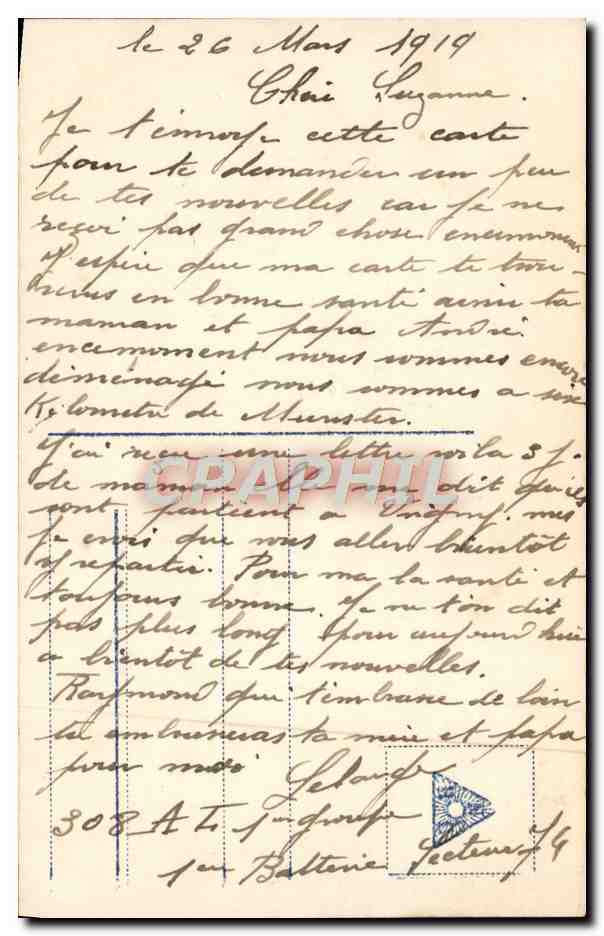 le 26 Mars 1919
Cheri Suzanne.
Je t'envoye cette carte
pour te demander un peu
de tes nouvelles car je ne
reçoi pas grand chose encemoment
J'espère que ma carte te trou-
veras en bonne santé ainsi ta
maman et papa André.
encemoment nous sommes encore
déménagé nous sommes a six
Kilometre de Munster.
J'ai reçu une lettre voila 3 j.
de maman elle me dit qu'ils
sont partient a mes
je crois que vous aller bientôt
y repartir. Pour ma la santé et
toujours bonne. Je ne t'en dit
pas plus long pour aujourd hui
a bientôt de tes nouvelles.
Raymond qui t'embrasse de loin
tu embrasseras ta mère et papa
pour moi
Lelarge
308 A L 1er groupe
1er Batterie Secteur 74
CRAPHIL